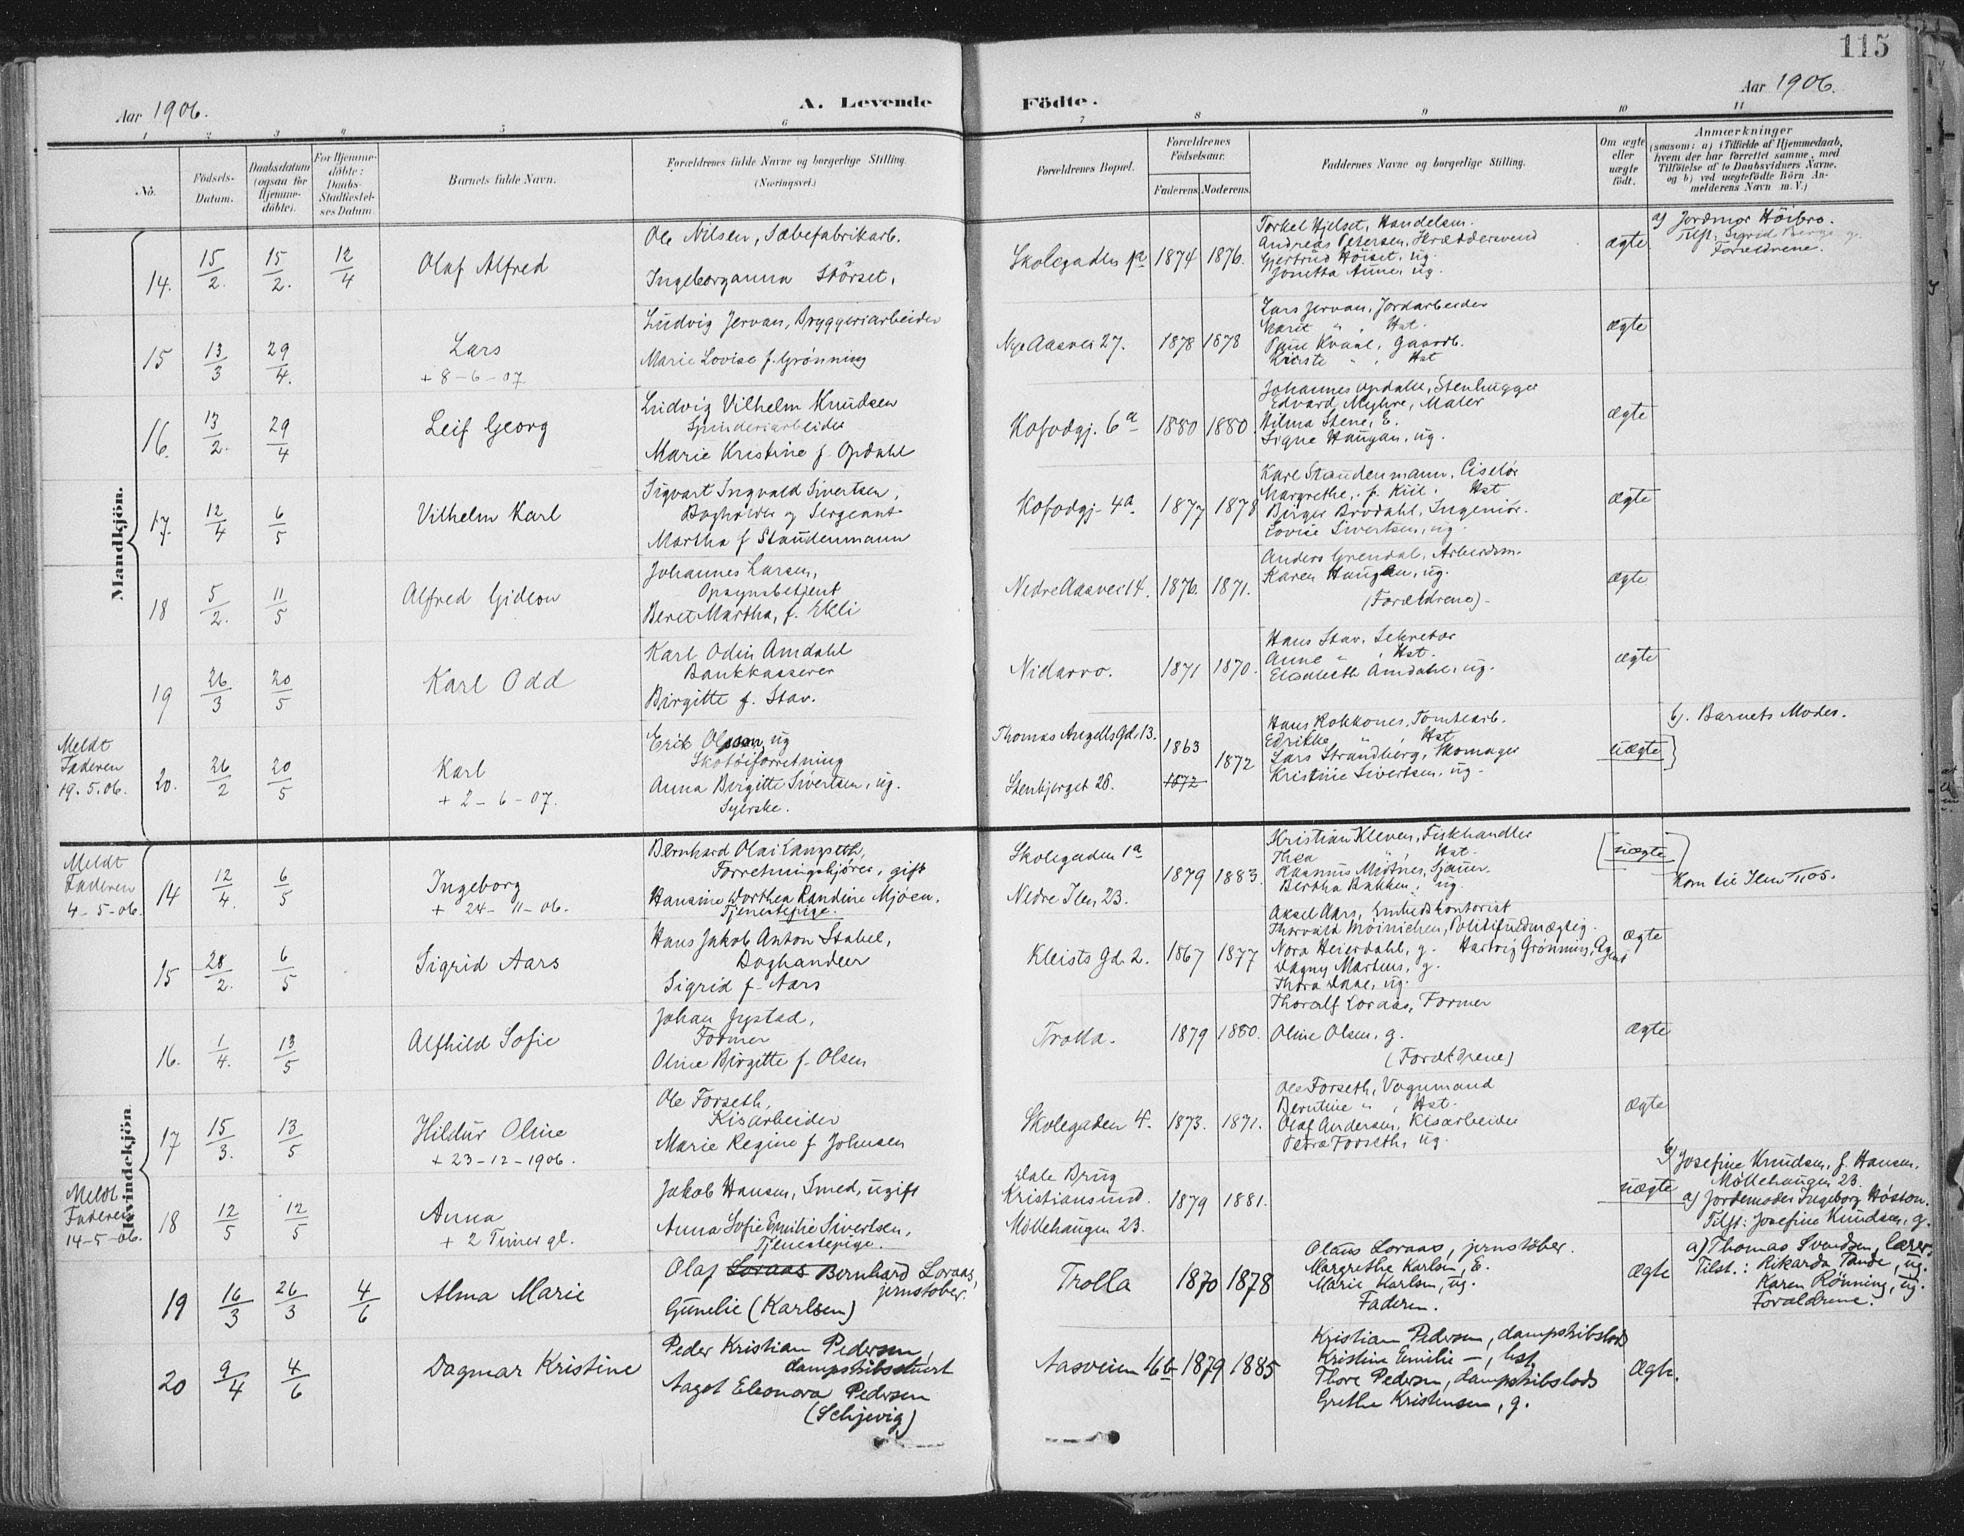 115
Aar 1906.
A. Levende Födte.
Aar 1906.
1 2 3 4 5 6 7 8 9 10 11
No.
Födsels-Datum.
Daabsdatum (ogsaa for Hjemme-döbte).
For Hjemme-döbte: Daabs-Stadfæstel-ses Datum.
Barnets fulde Navn.
Forældrenes fulde Navne og borgerlige Stilling. (Næringsvei.)
Forældrenes Bopæl.
Forældrenes Födselsaar.
Faderens. Moderens.
Faddernes Navne og borgerlige Stilling.
Om ægte eller uægte födt.
Anmærkninger
(saasom: a) i Tilfælde af Hjemmedaab, hvem der har forrettet samme, med Tilföielse af to Daabsvidners Navne, og b) ved uægtefödte Börn Anmelderens Navn m. V.)
Mandkjön.
14. 15/2. 15/2. 12/4 Olaf Alfred
Ole Nilsen, Sæbefabrikarb.
Ingeborganna Störset.
Skolegaden 1a 1874 1876.
Torkel Hjelset, Handelsm.
Andreas Petersen, Skræddersvend
Gjertrud Höiset, ug.
Jonetta Aune, ug.
ægte
a) Jordmor Höibro.
Tilst. Sigrid Berge g.
Forældrene.
15 13/3 29/4. Lars
+ 8-6-07.
Ludvig Jervan, Bryggeriarbeider
Marie Lovise f. Grönning
Nye Aasvei 27. 1878 1878
Lars Jervan, Jordarbeider
Marit " , Hst.
Paul Kvaal, Gaardb.
Kirste " , Hst
ægte
16. 13/2. 29/4 Leif Georg
Ludvig Vilhelm Knudsen
Spinderiarbeider
Marie Kristine f. Opdahl
Kofodgj. 6a 1880 1880.
Johannes Opdahl, Stenhugger
Edvard Myhre, Maler
Hilma Stene, E.
Signe Haugan, ug.
ægte
17. 12/4 6/5 Vilhelm Karl
Sigvart Ingvald Sivertsen,
Bogholder og Sergeant
Martha f Staudenmann
Kofodgj- 4a. 1877 1878
Karl Staudenmann, Ciselör
Margrethe, f. Kiil. Hst
Birger Brodahl, Ingeniör.
Lovise Sivertsen, ug.
ægte
18 5/2. 11/5 Alfred Gideon
Johannes Larsen,
Opsynsbetjent
Beret Martha, f. Ekli
Nedre Aasvei 14. 1876. 1871.
Anders Grendal, Arbeidsm.
Karen Haugen, ug.
(Forældrene)-
ægte
19 26/3 20/5 Karl Odd
Karl Odin Amdahl
Bankkasserer
Birgitte f. Stav.
Nidarvo. 1871 1870.
Hans Stav, Sekretær
Anne " , Hst.
Elisabeth Amdahl, ug.
ægte
Meldt
Faderen
19.5.06.
20. 26/2 20/5 Karl
+ 2-6-07.
Erik Olsson, ug
Skotöiforretning
Anna Birgitte Sivertsen, ug.
Syerske.
Thomas Angells Gd. 13.
Stenbjerget 28.
1863
1872
1872
Hans Kokkones, Tomtearb.
Edrikke " Hst
Lars Strandberg, Skomager
Kristine Sivertsen, ug.
uægte
b). Barnets Moder.
Kvindekjön.
Meldt
Faderen
4-5-06.
14 12/4. 6/5 Ingeborg
+ 24-11-06.
Bernhard Olai Langseth,
Forretningskjörer, gift
Hansine Dorthea Randine Mjöen,
Tjenestepige.
Skolegaden 1a
Nedre Ilen 23.
1879 1883.
Kristian Kleven, Fiskhandler
Thea " Hst.
Rasmus Midtnes, Sjauer
Bertha Bakken, ug.
uægte
Kom til Ilen 1/1 05.
15 28/2. 6/5 Sigrid Aars
Hans Jakob Anton Stabel,
Boghandler
Sigrid f. Aars
Kleists Gd. 2. 1867 1877
Aksel Aars, Embedskontorist
Thorvald Moinichen, Politifuldmægtig.
Nora Heierdahl, g. Hartvig Grönning, Agent
Dagny Martens, g.
Thora Daae, ug.
ægte
16. 1/4. 13/5 Alfhild Sofie
Johan Jystad,
Former
Oline Birgitte f. Olsen
Trolla. 1879 1880.
Thoralf Loraas, Former
Oline Olsen, g.
(Forældrene)
ægte
17 15/3. 13/5 Hildur Oline
+ 23-12-1906.
Ole Forseth,
Kisarbeider
Marie Regine f Johnsen
Skolegaden 4. 1873. 1871.
Ole Forseth, Vognmand
Berntine " , Hst.
Olaf Andersen, Kisarbeider
Petra Forseth, ug.
ægte
Meldt
Faderen
14-5-06.
18 12/5 12/5 Anna
+ 2 Timer gl.
Jakob Hansen, Smed, ugift
Anna Sofie Emilie Sivertsen,
Tjenestepige.
Dale Brug
Kristiansund.
Möllehaugen 23.
1879 1881.
uægte
b) Josefine Knudsen, f. Hansen,
Möllehaugen 23.
a) Jordemoder Ingeborg Höston.
Tilst: Josefine Knudsen, g.
19 16/3 26/3 4/6 Alma Marie
Olaf Loraas Bernhard Loraas,
jernstöber.
Gunelie (Karlsen)
Trolla 1870 1878
Olaus Loraas, jernstöber.
Margrethe Karlsen, E.
Marie Karlsen, ug.
Faderen.
ægte
a) Thomas Svendsen, lærer.
Tilst.: Rikarda Tande, ug.
Karen Rönning, ug.
Forældrene.
20 9/4 4/6 Dagmar Kristine
Peder Kristian Pedersen,
dampskibsstuert
Aagot Eleonora Pedersen
(Schjevig)
Aasveien 16b 1879 1885
Kristian Pedersen, dampskibslods
Kristine Emilie —, hst.
Thore Pedersen, dampskibslods
Grethe Kristensen, g.
ægte.